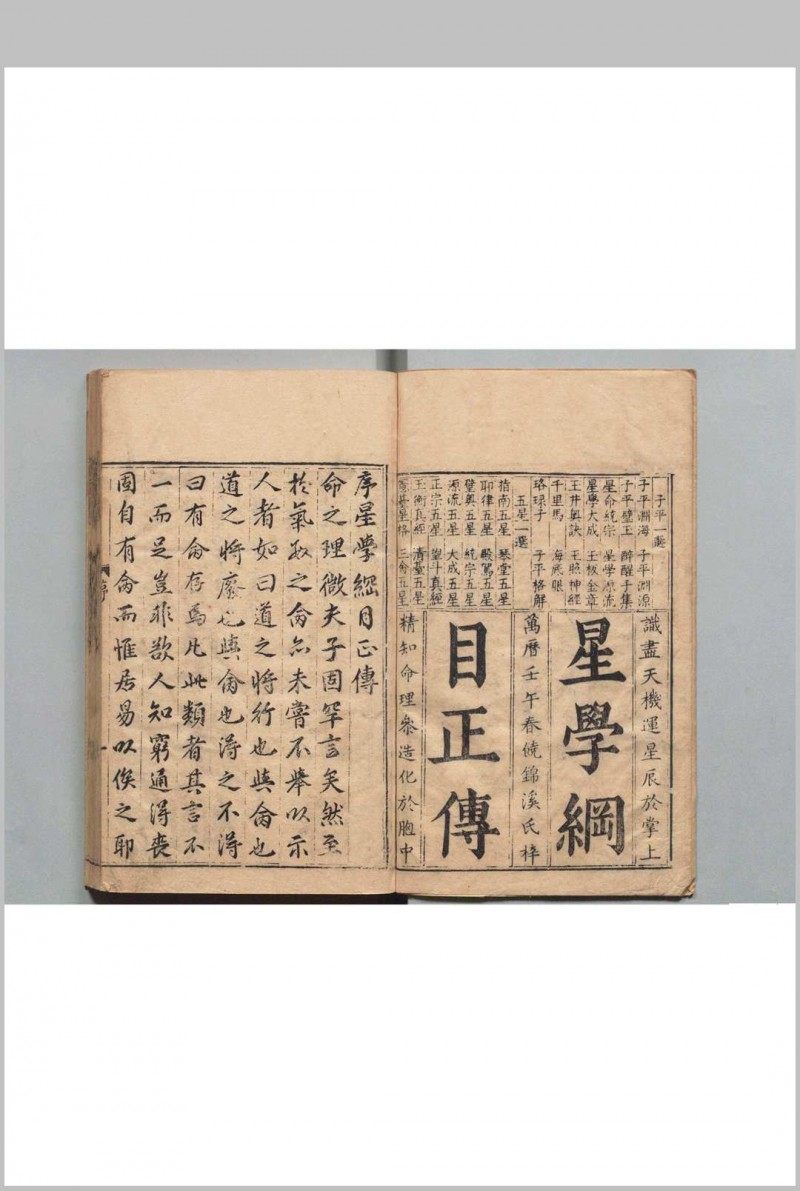 子平一選
子平淵海 子平淵源
子平璧玉 醉醒子集
星命統宗 星學源流
星學大成 玉板金章
玉井奧訣 玉照神經
千里馬 海底眼
珞琭子 子平格解
五星一選
指南五星 琴堂五星
耶律五星 殿駕五星
璧奧五星 純宗五星
源流五星 大成五星
正宗五星 望斗真經
玉衡真經 清臺五星
星格 三命五星
識盡天機運星辰於掌上
星學綱
萬曆壬午春饒錦溪氏梓
目正傳
精知命理參造化於胞中
序星學綱目正傳
命之理微夫子固罕言矣然至
於氣數之命亦未嘗不舉以示
人者如曰道之將行也與命也
道之將廢也與命也得之不得
曰有命存焉凡此類者其言不
一而足豈非欲人知窮通得喪
固自有命而惟居易以俟之耶
序
一